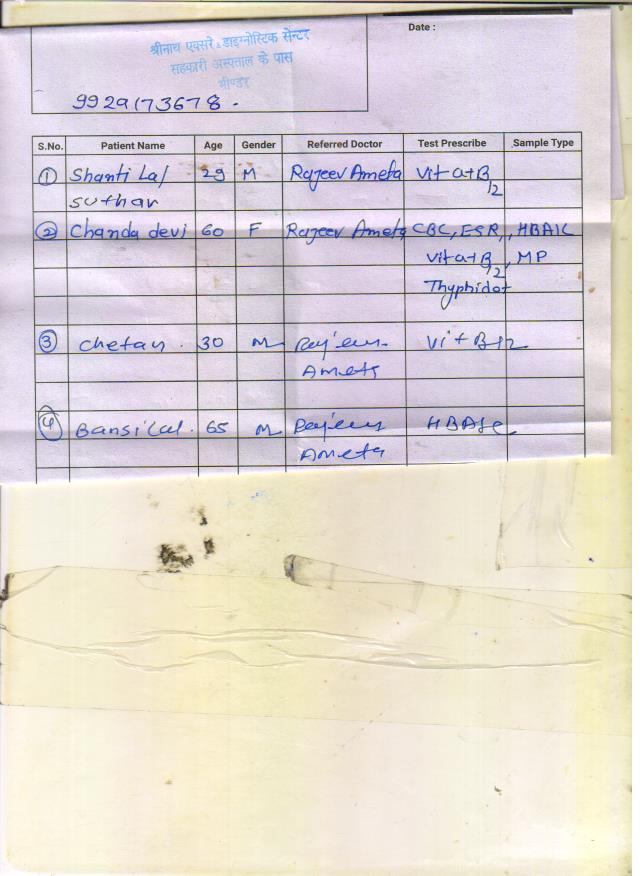 श्रीनाथ एक्सरे & डाइग्नोस्टिक सेन्टर
सहकारी अस्पताल के पास
भीण्डर
Date :
9929173678.
S.No. Patient Name Age Gender Referred Doctor Test Prescribe Sample Type
1 Shanti Lal 29 M Rajeev Ameta Vit a+B12
suthar
2 Chanda devi 60 F Rajeev Ameta CBC, ESR, HBA1C
Vit a+B12, MP
Thyphidot
3 Chetan. 30 M Rajeev Vit B12
Ameta
4 Bansilal. 65 M Rajeev HBA1c.
Ameta